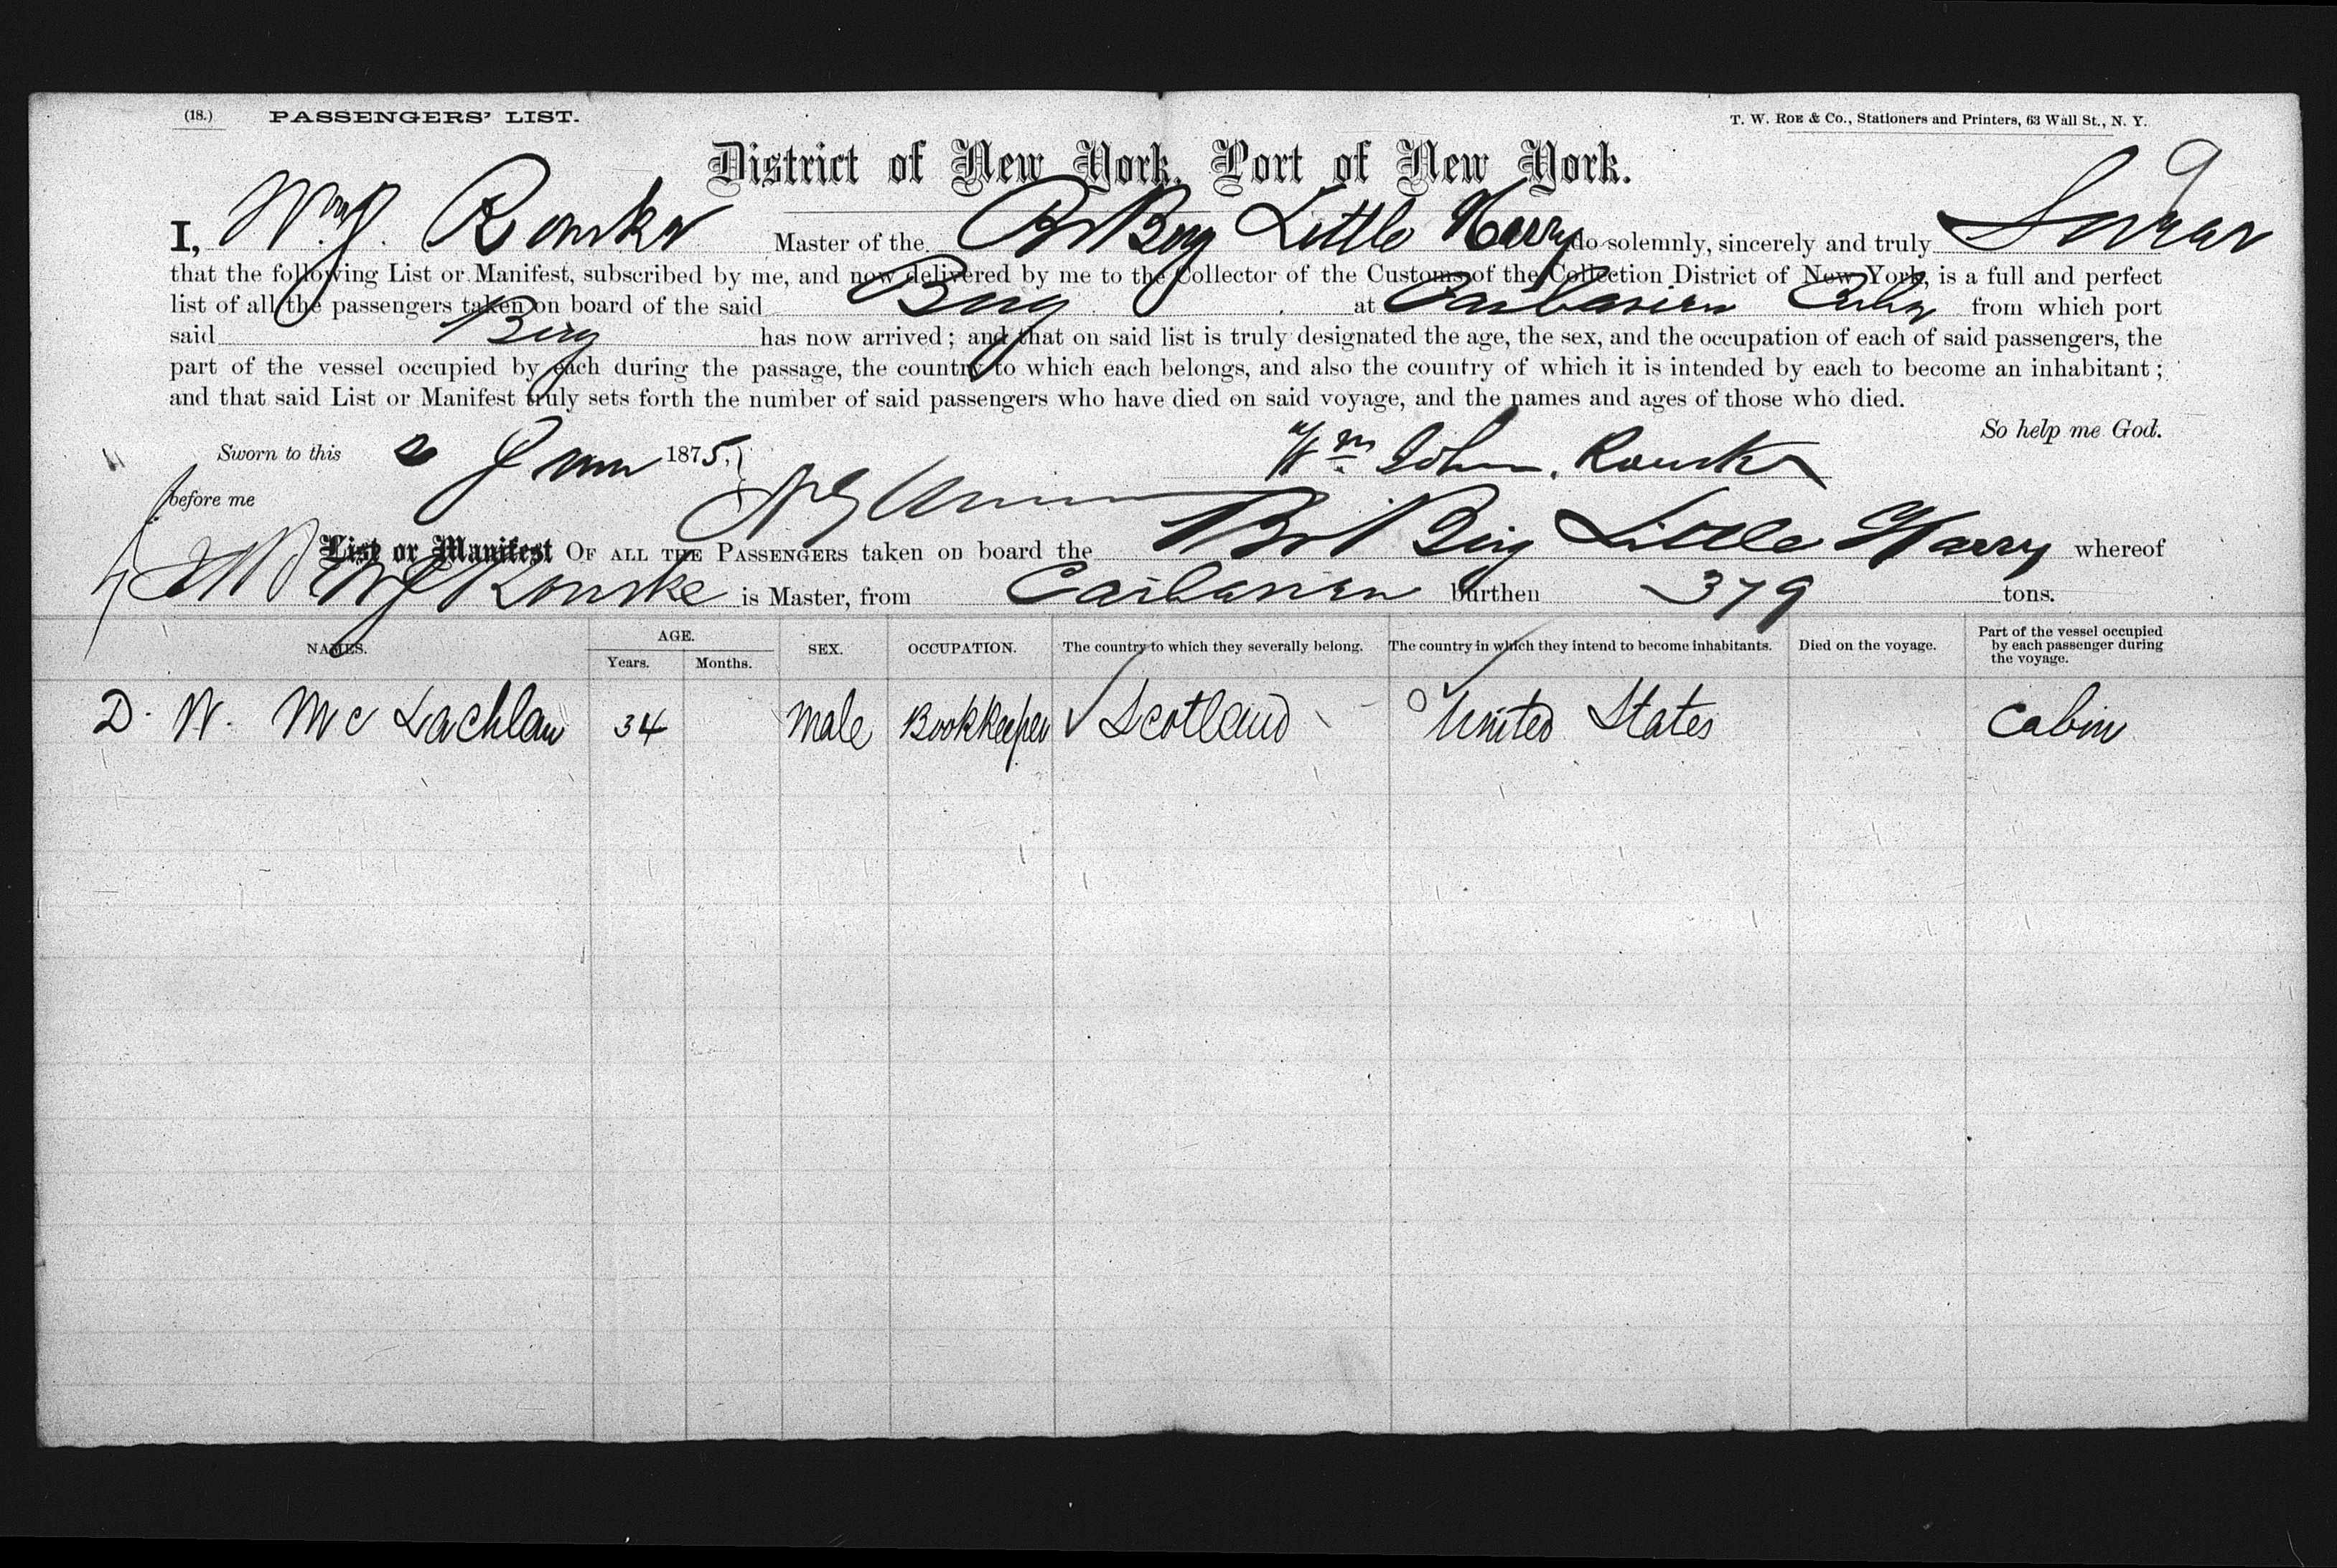 (18.) PASSENGERS' LIST.
T. W. ROE & Co., Stationers and Printers, 63 Wall St., N. Y.
District of New York, Port of New York.
I, Wm J. Rourke Master of the Br Brig Little Harry do solemnly, sincerely and truly Swear
that the following List or Manifest, subscribed by me, and now delivered by me to the Collector of the Customs of the Collection District of New York, is a full and perfect
list of all the passengers taken on board of the said Brig at Caibarien Cuba from which port
said Brig has now arrived; and that on said list is truly designated the age, the sex, and the occupation of each of said passengers, the
part of the vessel occupied by each during the passage, the country to which each belongs, and also the country of which it is intended by each to become an inhabitant;
and that said List or Manifest truly sets forth the number of said passengers who have died on said voyage, and the names and ages of those who died.
So help me God.
Sworn to this 2 Jan 1875, Wm John Rourke
before me
List or Manifest OF ALL THE PASSENGERS taken on board the Br Brig Little Harry whereof
W J Rourke is Master, from Caibarien burthen 379 tons.
NAMES. AGE. Years. Months. SEX. OCCUPATION. The country to which they severally belong. The country in which they intend to become inhabitants. Died on the voyage. Part of the vessel occupied by each passenger during the voyage.
D. W. Mc Lachlan 34 Male Bookkeeper Scotland United States Cabin